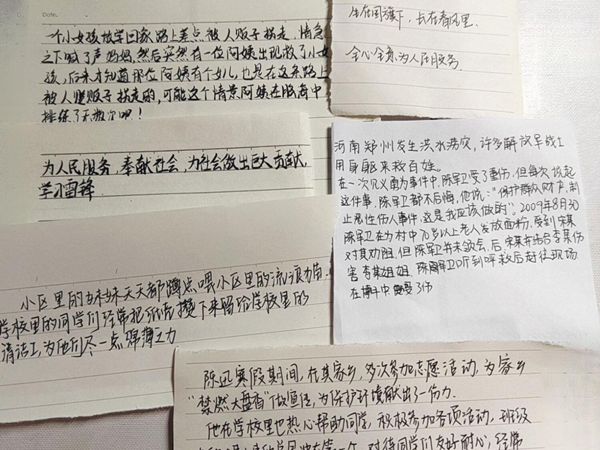 一个小女孩放学回家路上差点被人贩子拐走,情急
之下喊了声妈妈,然后突然有一位阿姨出现救了小女
孩,后来才知道那位阿姨有个女儿,也是在这条路上
被人贩子拐走的,可能这个情景阿姨在脑海中
排练了无数次吧!
生在国旗下,长在春风里.
全心全意为人民服务.
为人民服务,奉献社会,为社会做出巨大贡献,
学习雷锋
河南郑州发生洪水涝灾,许多解放军战士
用身躯来救百姓。
在一次见义勇为事件中,陈军卫受了重伤,但每次谈起
这件事,陈军卫都不后悔,他说:"保护群众财产,制
止恶性伤人事件,这是我应该做的"。2009年8月30
陈军卫在为村中70岁以上老人发放面粉,受到宋某
对其劝阻,但陈军卫并未领会,后宋某并结合李某伤
害李某姐姐,陈军卫听到呼救后赶往现场
在搏斗中受了伤
小区里的妹妹天天都蹲点喂小区里的流浪猫.
学校里的同学们经常把纸壳攒下来留给学校里的
清洁工,为他们尽一点绵薄之力
陈迅寒假期间,在其家乡,多次参加志愿活动,为家乡
"禁燃大盘香"做宣传,为保护环境献出了一份力.
他在学校里也热心帮助同学,积极参加各项活动.班级
对待同学们友好耐心,经常